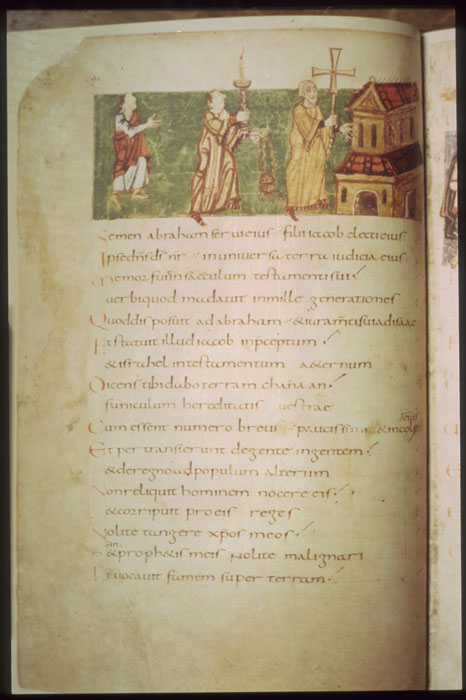 Semen abraham serui eius filii iacob electi eius
Ipse dn̄s ds̄ nr̄ in uniuersa terra iudicia eius
Memor fuit in saeculum testamenti sui
uerbi quod mandauit in mille generationes
Quod disposuit ad abraham & iuramti sui ad isaac
Et statuit illud iacob in preceptum
& israhel in testamentum aeternum
Dicens tibi dabo terram chanaan
funiculum hereditatis uestrae
Cum essent numero breui paucissimi & incolę
Et per transierunt de gente in gentem
& de regno ad populum alterum
Non reliquit hominem nocere eis
& corripuit pro eis reges
Nolite tangere xp̄os meos
& in prophetis meis nolite malignari
Et uocauit famem super terram